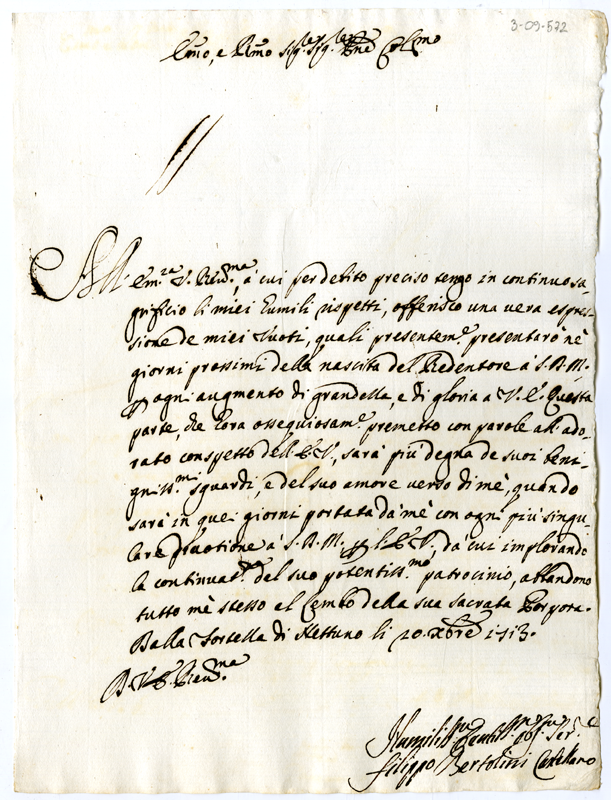 3-09-572
Em͂o, e Rm͂o Sig.re Sig.re Pne Col.mo
All' Em.za V. Reu.ma, à cui per debito preciso tengo in continuo sa-
grificio li miei humili rispetti, offerisco una vera espres-
sione de miei Vuoti, quali presentem.e presentarò nè
giorni prossimi della nascita del Redentore à S. D. M.
ꝑ ogni augmento di grandezza, e di gloria a V. E. Questa
parte, che hora ossequiosam.e premetto con parole all' ado-
rato conspetto dell' E. V., sarà più degna de suoi beni-
gniss.mi sguardi, e del suo amore verso di mè, quando
sarà in quei giorni portata da mè con ogni più singu-
lare diuotione à S. D. M. ꝑ l' E. V., da cui implorando
la continuat.e del suo potentiss.mo patrocinio, abbandono
tutto mè stesso al Lembo della sua sacrata Porpora.
Dalla Fortezza di Nettuno li 20. xbre 1713.
D. V. E. Reu.ma
Humiliss.mo Deuotiss.mo obl. Ser.e
Filippo Bertolini Castellano